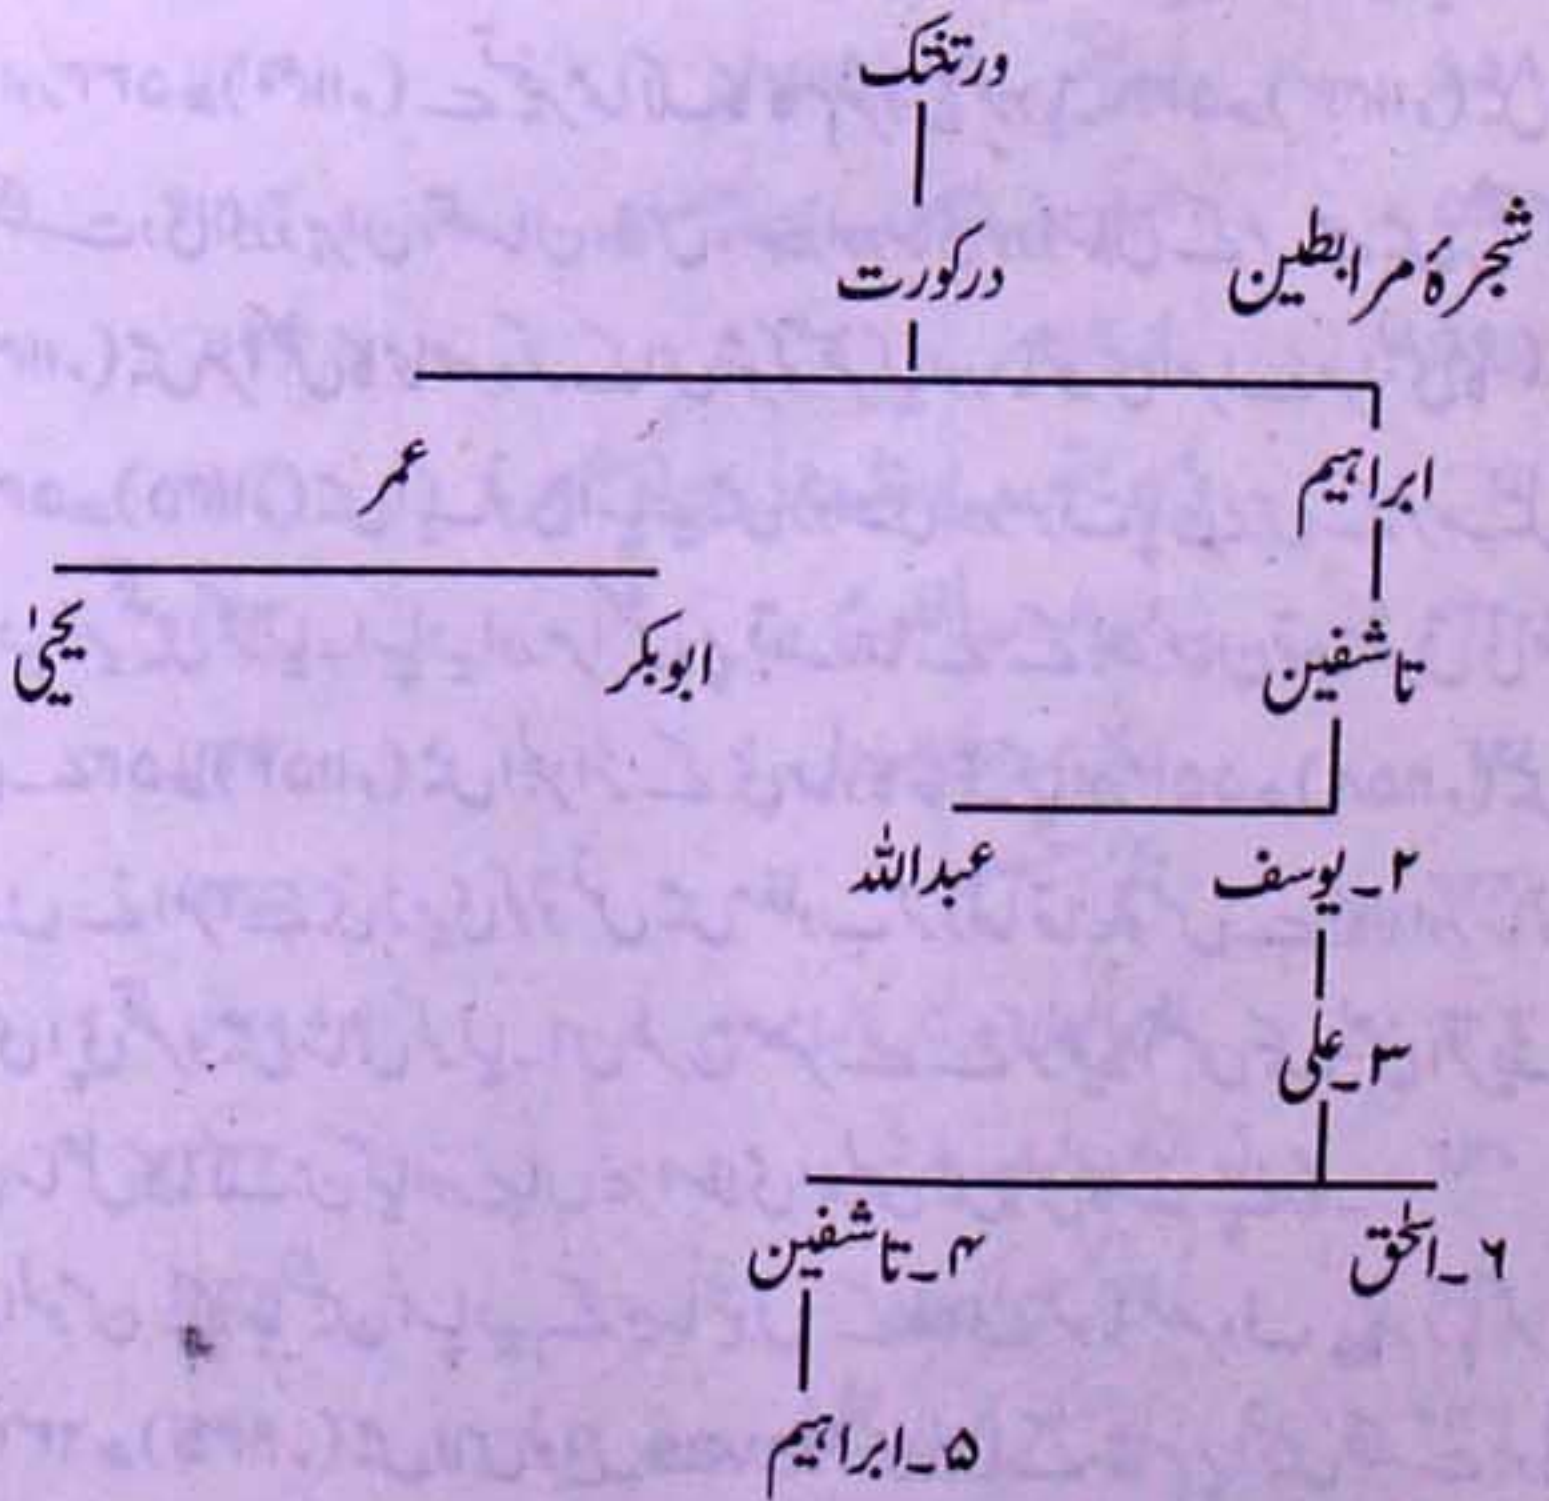 ورتفتک
شجرۂ مرابطین
درکورت
ابراہیم
عمر
تاشفین
ابوبکر
یحییٰ
۲۔یوسف
عبداللہ
۳۔علی
۶۔اسحٰق
۴۔تاشفین
۵۔ابراہیم